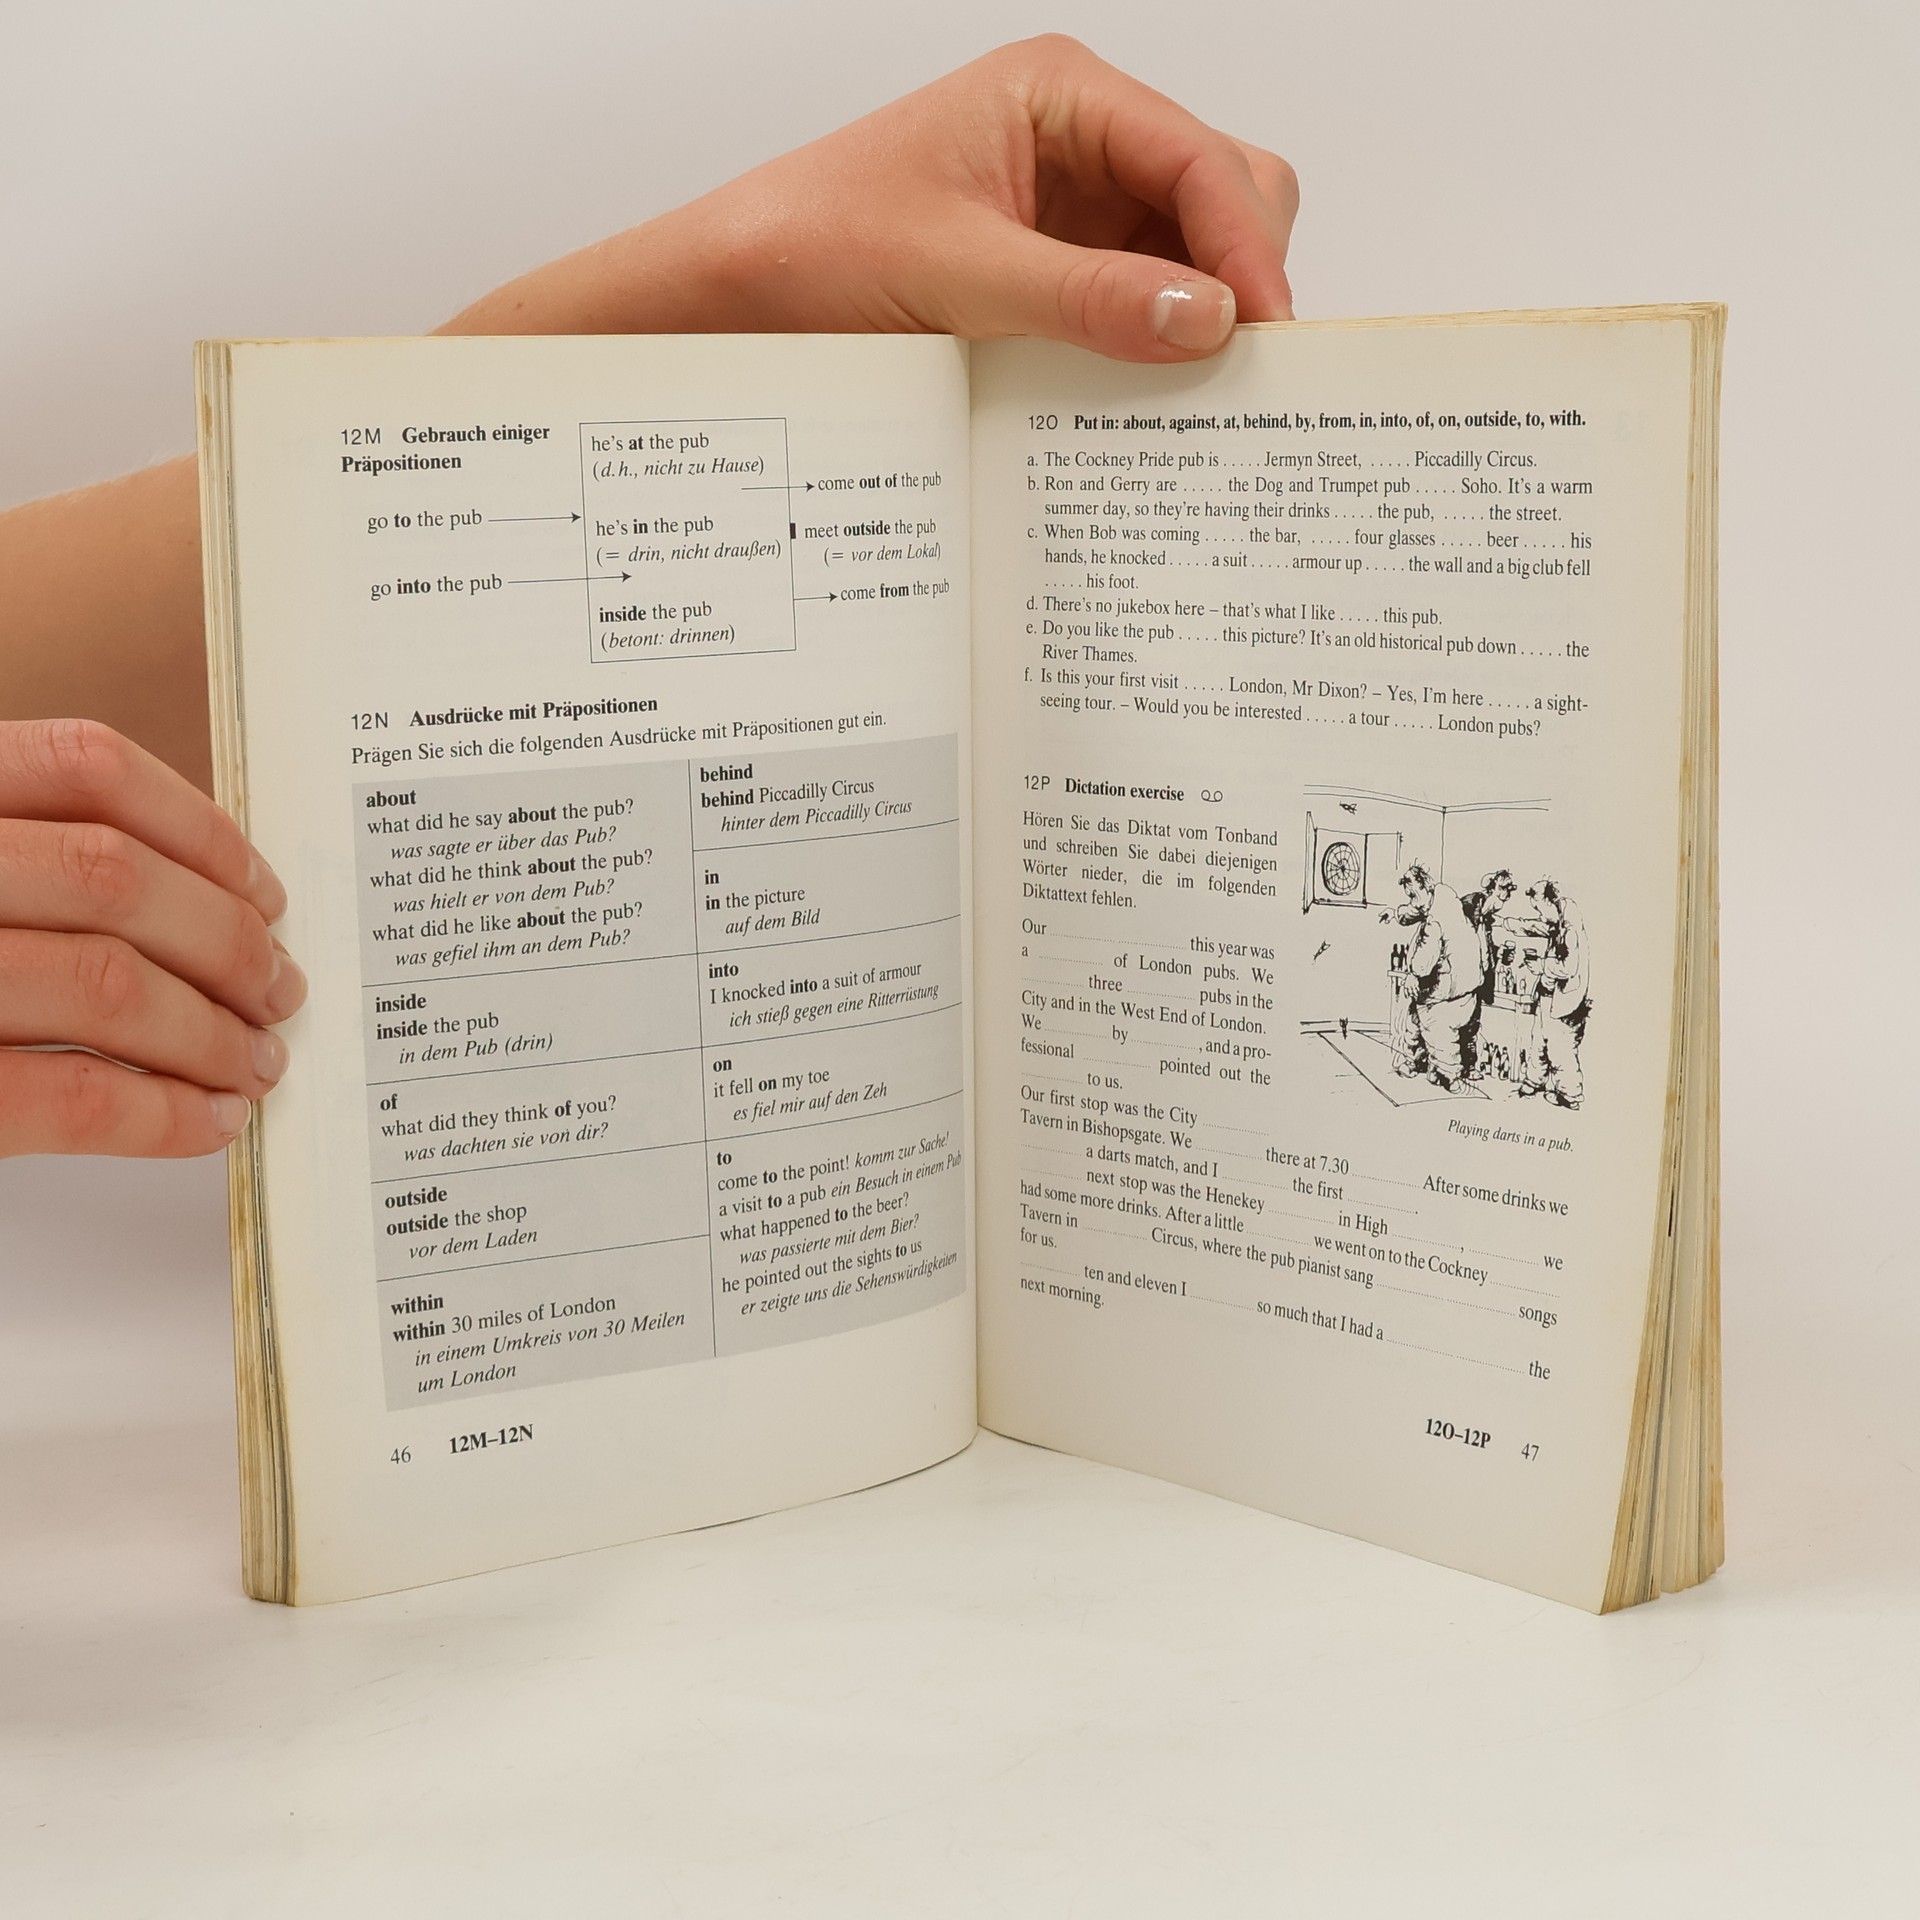 12M Gebrauch einiger
Präpositionen
go to the pub
go into the pub
he's at the pub
(d. h., nicht zu Hause)
he's in the pub
(= drin, nicht draußen)
inside the pub
(betont: drinnen)
come out of the pub
meet outside the pub
(= vor dem Lokal)
come from the pub
12N Ausdrücke mit Präpositionen
Prägen Sie sich die folgenden Ausdrücke mit Präpositionen gut ein.
about
what did he say about the pub?
was sagte er über das Pub?
what did he think about the pub?
was hielt er von dem Pub?
what did he like about the pub?
was gefiel ihm an dem Pub?
inside
inside the pub
in dem Pub (drin)
of
what did they think of you?
was dachten sie von dir?
outside
outside the shop
vor dem Laden
within
within 30 miles of London
in einem Umkreis von 30 Meilen
um London
behind
behind Piccadilly Circus
hinter dem Piccadilly Circus
in
in the picture
auf dem Bild
into
I knocked into a suit of armour
ich stieß gegen eine Ritterrüstung
on
it fell on my toe
es fiel mir auf den Zeh
to
come to the point! komm zur Sache!
a visit to a pub ein Besuch in einem Pub
what happened to the beer?
was passierte mit dem Bier?
he pointed out the sights to us
er zeigte uns die Sehenswürdigkeiten
46 12M–12N
12O Put in: about, against, at, behind, by, from, in, into, of, on, outside, to, with.
a. The Cockney Pride pub is ..... Jermyn Street, ..... Piccadilly Circus.
b. Ron and Gerry are ..... the Dog and Trumpet pub ..... Soho. It's a warm
summer day, so they're having their drinks ..... the pub, ..... the street.
c. When Bob was coming ..... the bar, ..... four glasses ..... beer ..... his
hands, he knocked ..... a suit ..... armour up ..... the wall and a big club fell
..... his foot.
d. There's no jukebox here – that's what I like ..... this pub.
e. Do you like the pub ..... this picture? It's an old historical pub down ..... the
River Thames.
f. Is this your first visit ..... London, Mr Dixon? – Yes, I'm here ..... a sight-
seeing tour. – Would you be interested ..... a tour ..... London pubs?
12P Dictation exercise
Hören Sie das Diktat vom Tonband
und schreiben Sie dabei diejenigen
Wörter nieder, die im folgenden
Diktattext fehlen.
Our .......... this year was
a .......... of London pubs. We
.......... three .......... pubs in the
City and in the West End of London.
We .......... by .........., and a pro-
fessional .......... pointed out the
.......... to us.
Our first stop was the City ..........
Tavern in Bishopsgate. We .......... there at 7.30 .......... After some drinks we
.......... a darts match, and I .......... the first ...........
.......... next stop was the Henekey .......... in High .........., .......... we
had some more drinks. After a little .......... we went on to the Cockney ..........
Tavern in .......... Circus, where the pub pianist sang .......... songs
for us.
.......... ten and eleven I .......... so much that I had a .......... the
next morning.
Playing darts in a pub.
12O–12P 47